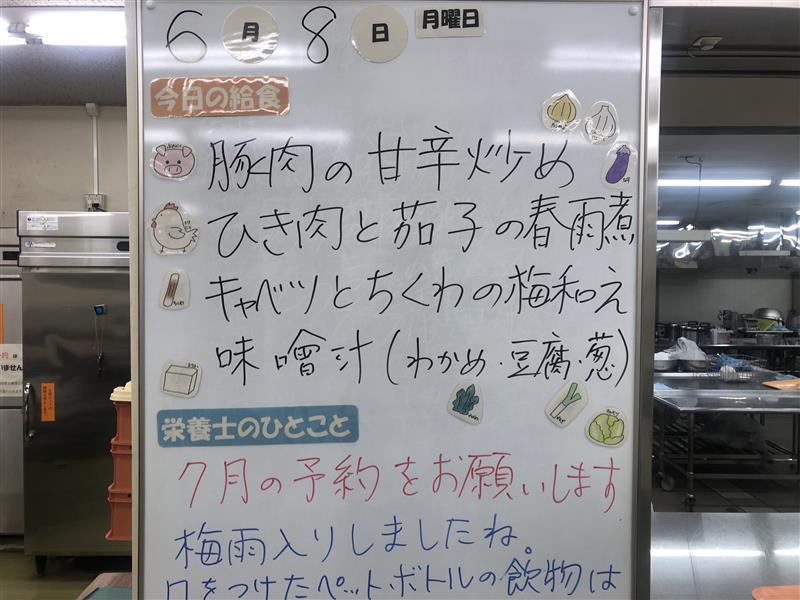 6月8日 月曜日
今日の給食
豚肉の甘辛炒め
ひき肉と茄子の春雨煮
キャベツとちくわの梅和え
味噌汁(わかめ・豆腐・葱)
栄養士のひとこと
7月の予約をお願いします
梅雨入りしましたね。
口をつけたペットボトルの飲物は